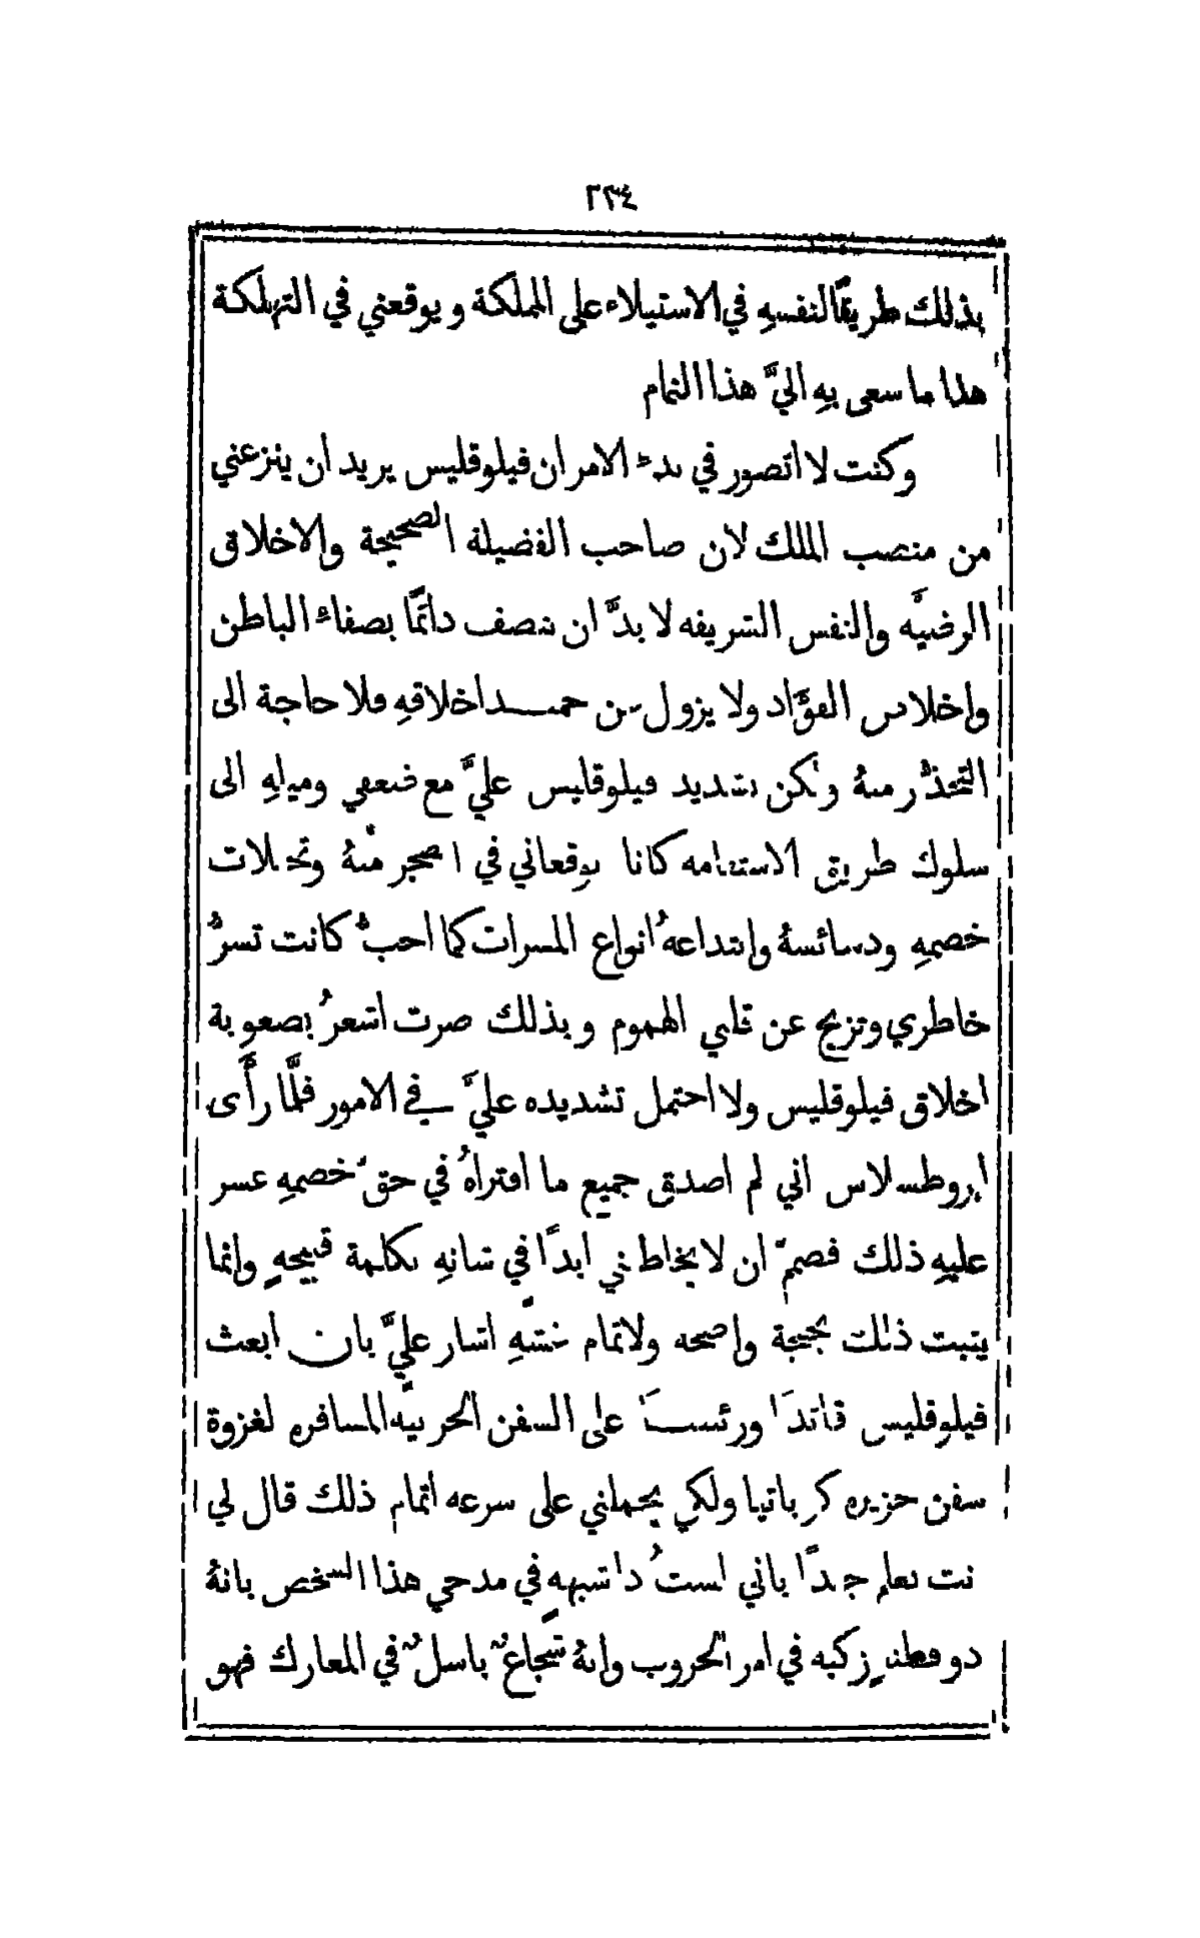 ٢٣٤
بذلك طريقًا لنفسهِ في الاستيلاء على المملكة ويوقعني في التهلكة
هذا ما سعى بهِ اليَّ هذا النمام
وكنت لا اتصور في بدء الامر ان فيلوقليس يريد ان ينزعني
من منصب الملك لان صاحب الفضيلة الصحيحة والاخلاق
الرضيَّه والنفس الشريفه لا بدَّ ان يتصف دائمًا بصفاء الباطن
واخلاص الفؤَاد ولا يزول من حميد اخلاقهِ فلا حاجة الى
التحذُّر منهُ ولكن تشديد فيلوقليس عليَّ مع ضعفي وميلهِ الى
سلوك طريق الاستقامه كانا يوقعاني في الضجر منهُ وتخيلات
خصمهِ ودسائسهُ وابتداعهُ انواع المسرات كما احبُّ كانت تسرُّ
خاطري وتزيح عن قلبي الهموم وبذلك صرت اشعرُ بصعوبة
اخلاق فيلوقليس ولا احتمل تشديده عليَّ في الامور فلمَّا رأَى
ابروطسلاس اني لم اصدق جميع ما افتراهُ في حق خصمهِ عسر
عليهِ ذلك فصمَّ ان لا يخاطبني ابدًا في شانهِ بكلمة قبيحهٍ وانما
يثبت ذلك بحجة واضحه ولاتمام اشار عليَّ بان ابعث
فيلوقليس قائدًا ورئيسًا على السفن الحربيَّه المسافره لغزوة
سفن جزيره كرباتيا ولكي يحملني على سرعه اتمام ذلك قال لي
نت تعلم جيدًا باني لستُ ذا شبههٍ في مدحي هذا الشخص بانهُ
ذو فطنهٍ زكيه في امر الحروب وانهُ شجاعٌ باسلٌ في المعارك فهو